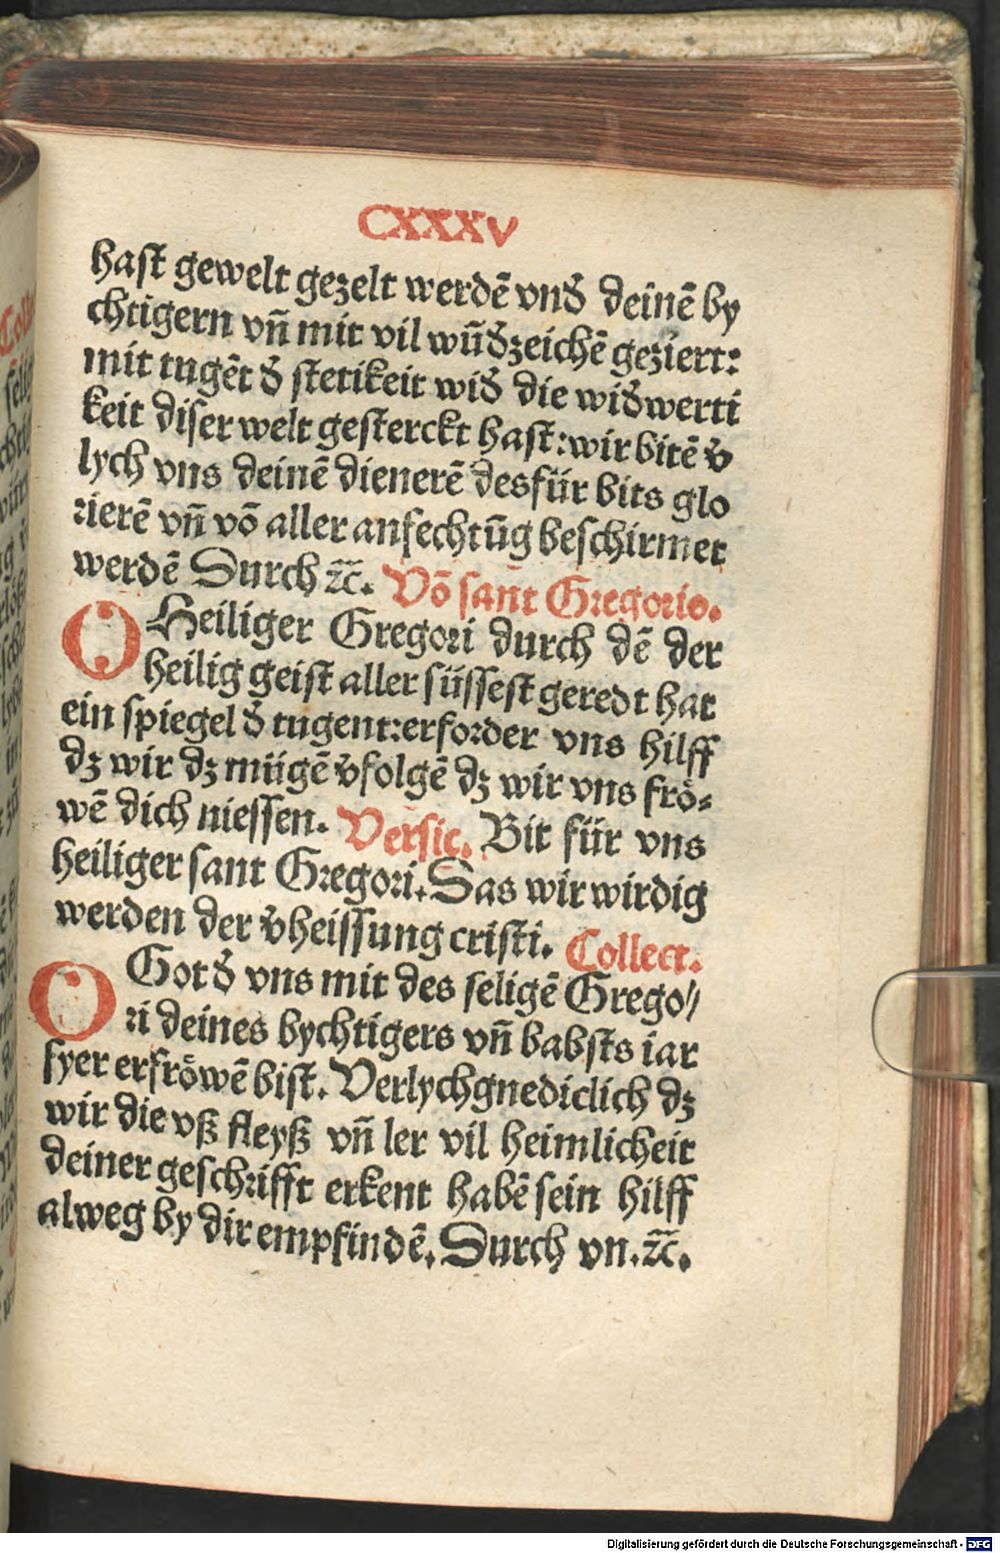 CXXXV
hast gewelt gezelt werdē vnđ deinē by
chtigern vn̄ mit vil wūđzeichē geziert:
mit tugēt đ stetikeit wiđ die wiđwerti
keit diser welt gesterckt hast: wir bitē v̄
lych vns deinē dienerē des für bits glo
rierē vn̄ vō aller anfechtūg beschirmet
werdē Durch ⁊c̄. Vō sant Gregorio.
O Heiliger Gregori durch dē der
heilig geist aller süssest geredt hat
ein spiegel đ tugent: erforder vns hilff
dz wir dz mügē v̄folgē dz wir vns frö⸗
wē dich niessen. Versic. Bit für vns
heiliger sant Gregori. Das wir wirdig
werden der v̄heissung cristi. Collect.
O Got đ vns mit des seligē Grego⸗
ri deines bychtigers vn̄ babsts iar
fyer erfröwē bist. Verlych gnediclich dz
wir die vß fleyß vn̄ ler vil heimlicheit
deiner geschrifft erkent habē sein hilff
alweg by dir empfindē. Durch vn. ⁊c̄.
Digitalisierung gefördert durch die Deutsche Forschungsgemeinschaft - DFG